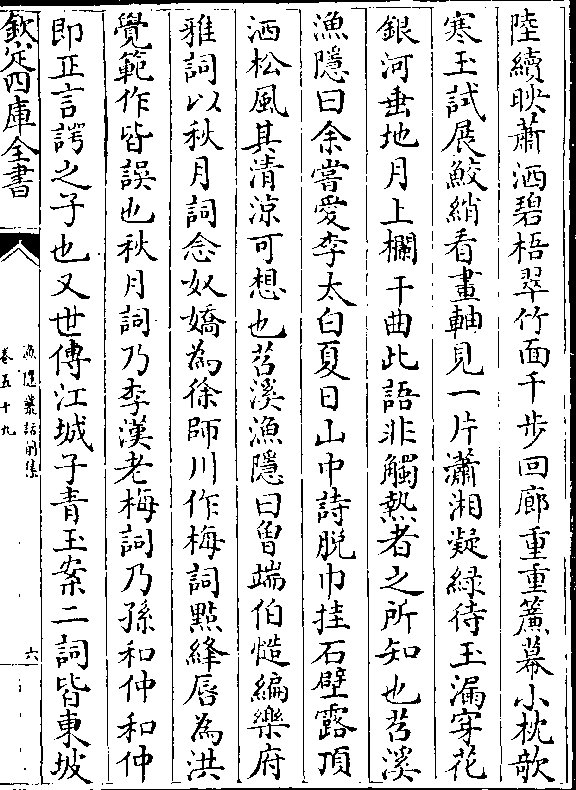 陸續映蕭洒碧梧翠竹面千步回廊重重簾幕小枕欹
寒玉試展鮫綃看畫軸見一片瀟湘凝綠待玉漏穿花
銀河垂地月上欄干曲此語非觸熱者之所知也苕溪
漁隱曰余嘗愛李太白夏日山中詩脱巾挂石壁露頂
洒松風其清涼可想也苕溪漁隱曰曽端伯慥編樂府
雅詞以秋月詞念奴嬌為徐師川作梅詞㸃絳唇為洪
覺範作皆誤也秋月詞乃李漢老梅詞乃孫和仲和仲
即正言諤之子也又世傳江城子青玉案二詞皆東坡
欽定四庫全書
漁隱叢話前集
卷五十九
六